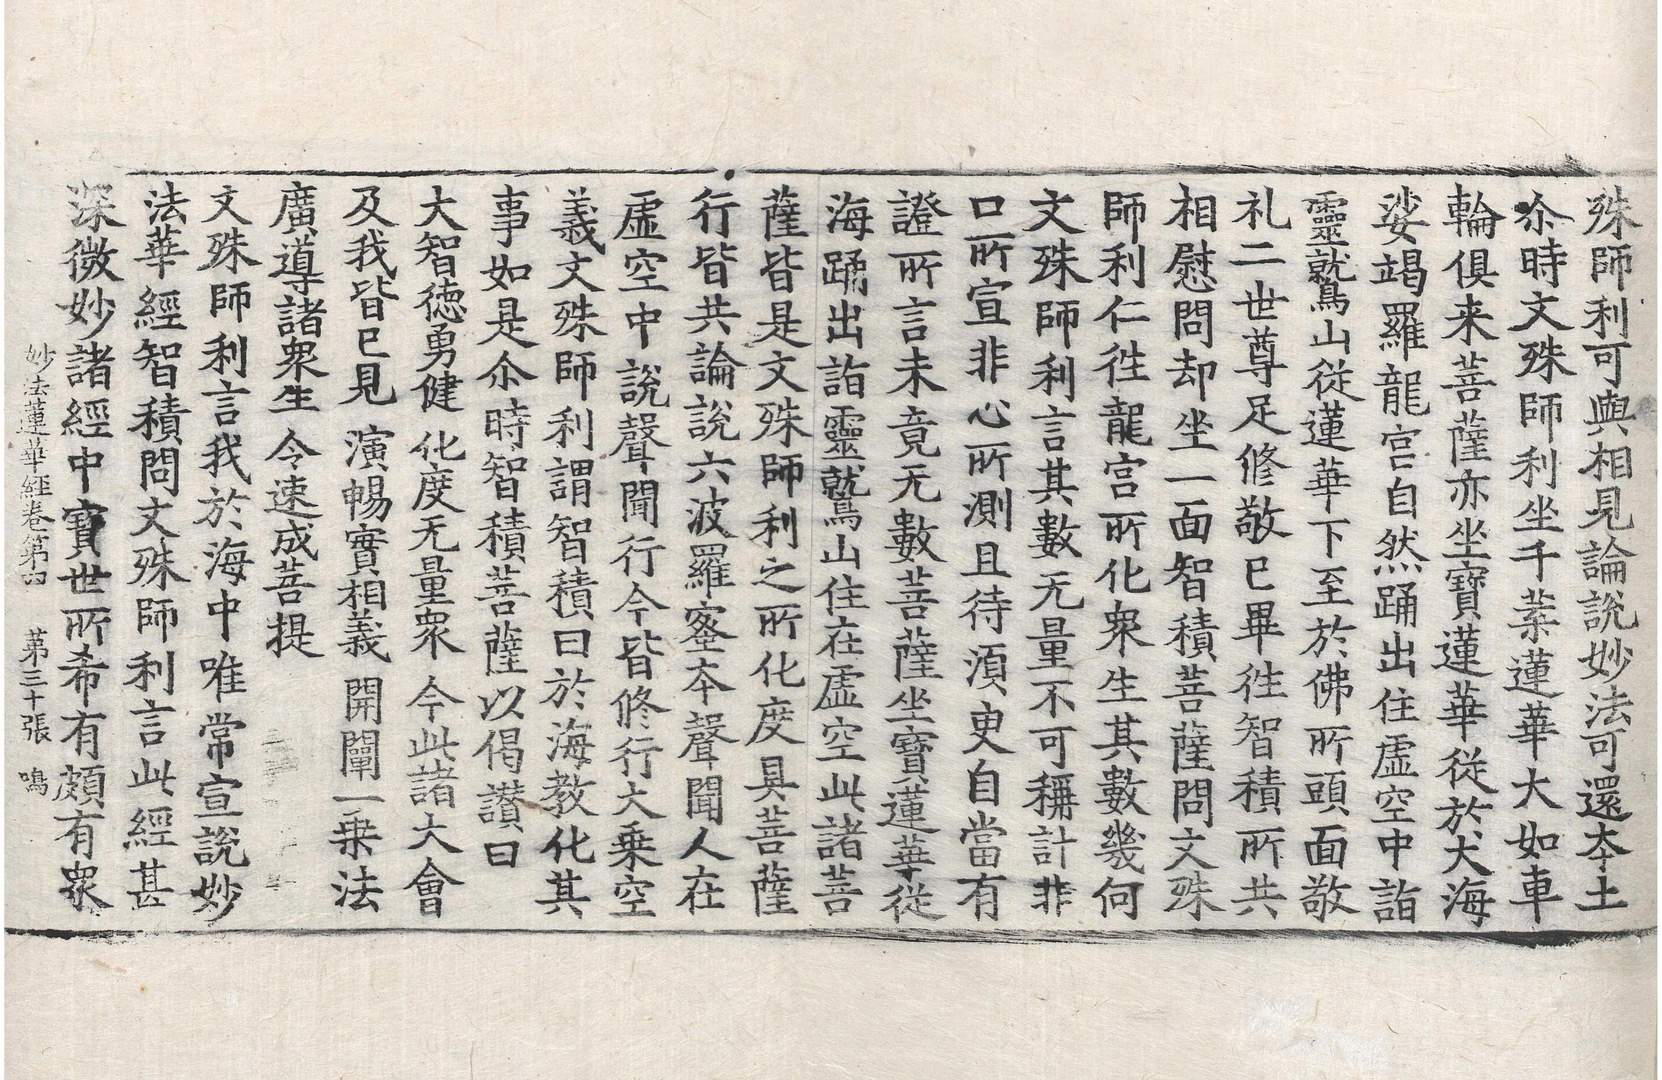 殊師利可與相見論說妙法可還夲土
尒時文殊師利坐千葉蓮華大如車
輪俱来菩薩亦坐寶蓮華從於大海
娑竭羅龍宮自然踊出住虛空中詣
靈鷲山從蓮華下至於佛所頭面敬
礼二世尊足修敬已畢往智積所共
相慰問却坐一面智積菩薩問文殊
師利仁徃龍宮所化衆生其數幾何
文殊師利言其數无量不可稱計非
口所宣非心所測且待湏臾自當有
證所言未竟无數菩薩坐寶蓮華從
海踊出詣靈鷲山住在虛空此諸菩
薩皆是文殊師利之所化度具菩薩
行皆共論說六波羅蜜夲聲聞人在
虛空中說聲聞行今皆修行大乘空
義文殊師利謂智積曰於海教化其
事如是尒時智積菩薩以偈讃曰
大智德勇健 化度无量衆 今此諸大會
及我皆已見 演暢實相義 開闡一乘法
廣導諸衆生 令速成菩提
文殊師利言我於海中唯常宣說妙
法華經智積問文殊師利言此經甚
深微妙諸經中寶世所希有頗有衆
妙法蓮華經卷第四 第三十張 鳴